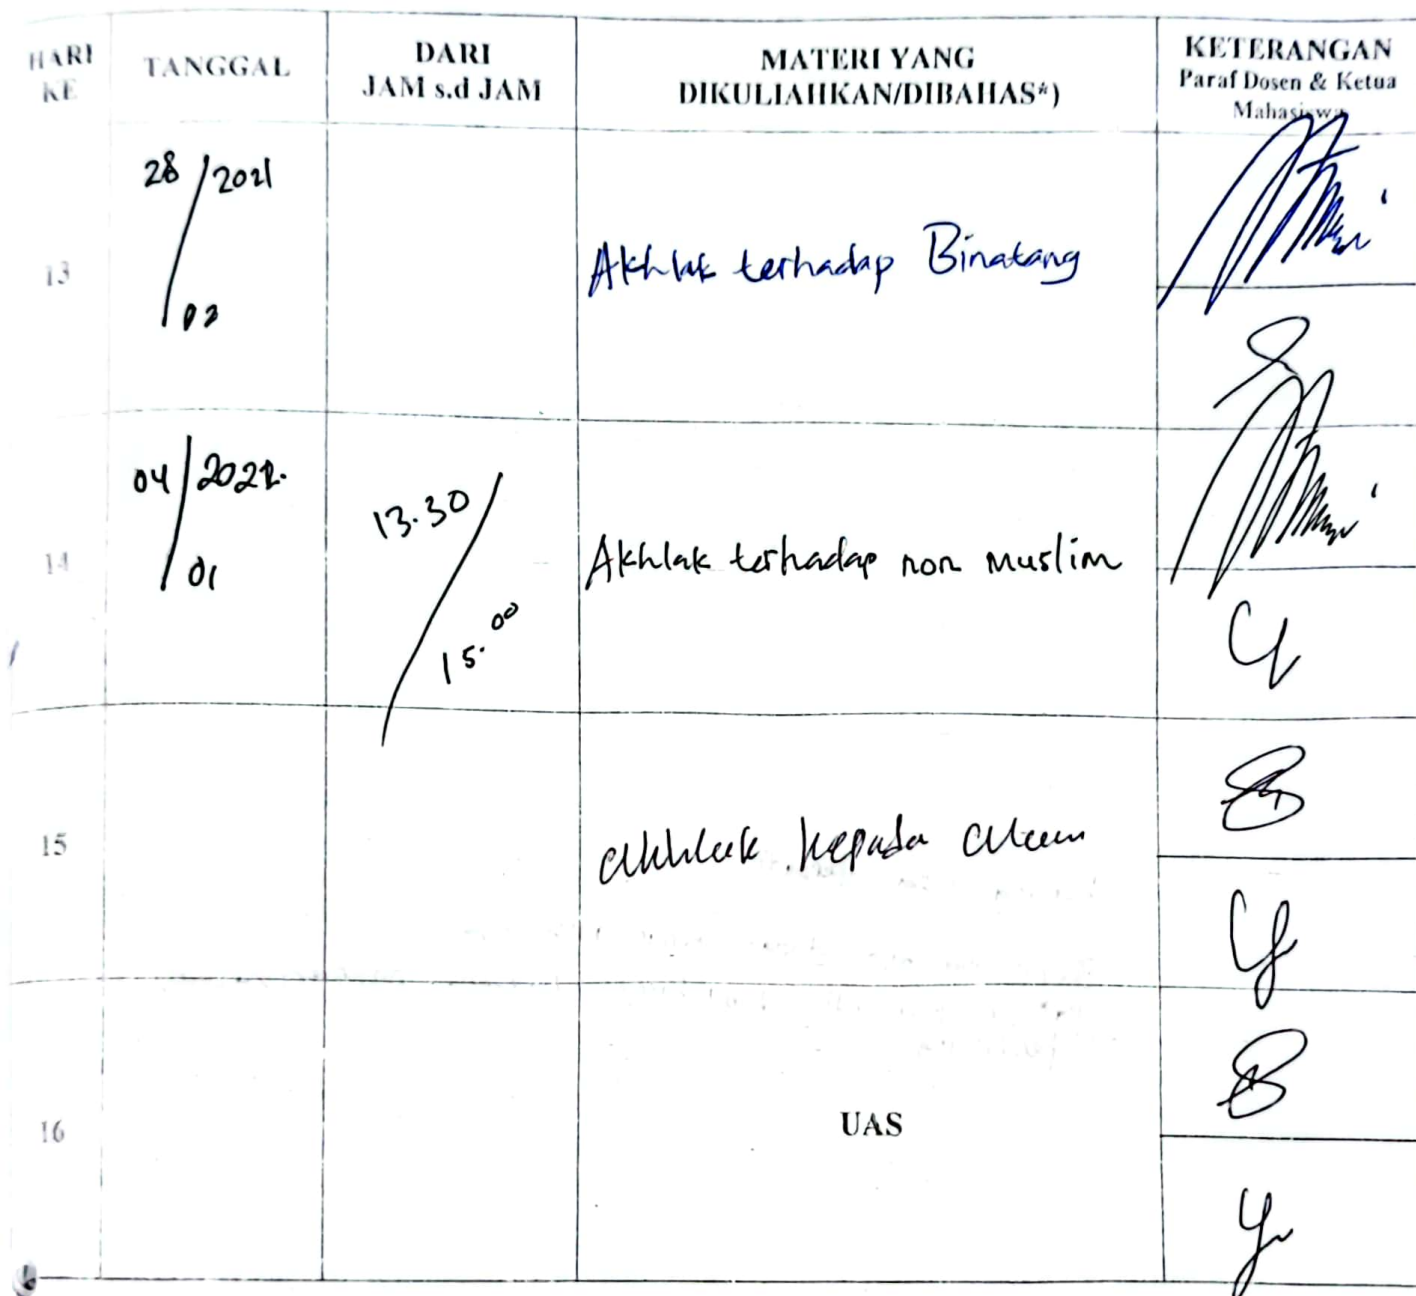 HARI KE
TANGGAL
DARI
JAM s.d JAM
MATERI YANG
DIKULIAHKAN/DIBAHAS*)
KETERANGAN
Paraf Dosen & Ketua
Mahasiswa
13
28/2021
Akhlak terhadap Binatang
14
04/2022.
01
13.30
15.00
Akhlak terhadap non muslim
15
akhlak kepada alam
16
UAS